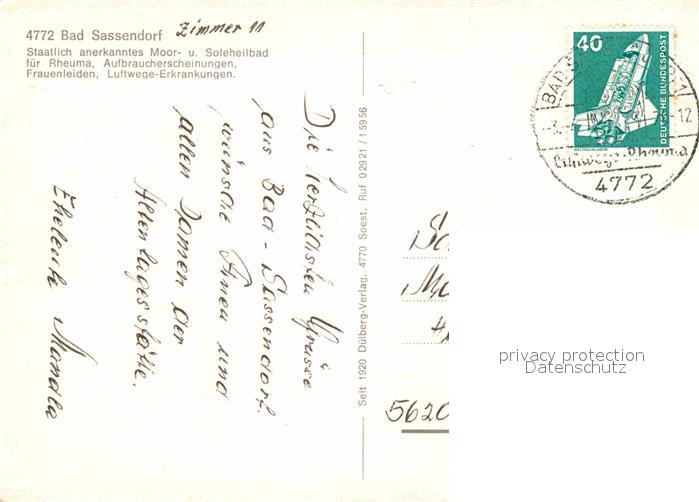 4772 Bad Sassendorf
Zimmer 11
Staatlich anerkanntes Moor- u. Soleheilbad
für Rheuma, Aufbraucherscheinungen,
Frauenleiden, Luftwege-Erkrankungen.
Die herzlichsten Grüsse
aus Bad-Sassendorf.
wünsche Ihnen und
allen Damen der
Altentagesstätte.
Eheleute Mandla
Seit 1920 Dülberg-Verlag, 4770 Soest. Ruf 02921/15956
40
DEUTSCHE BUNDESPOST
WELTRAUMLABOR
BAD S
-3.
-12
Rheuma
4772
5620
privacy protection
Datenschutz